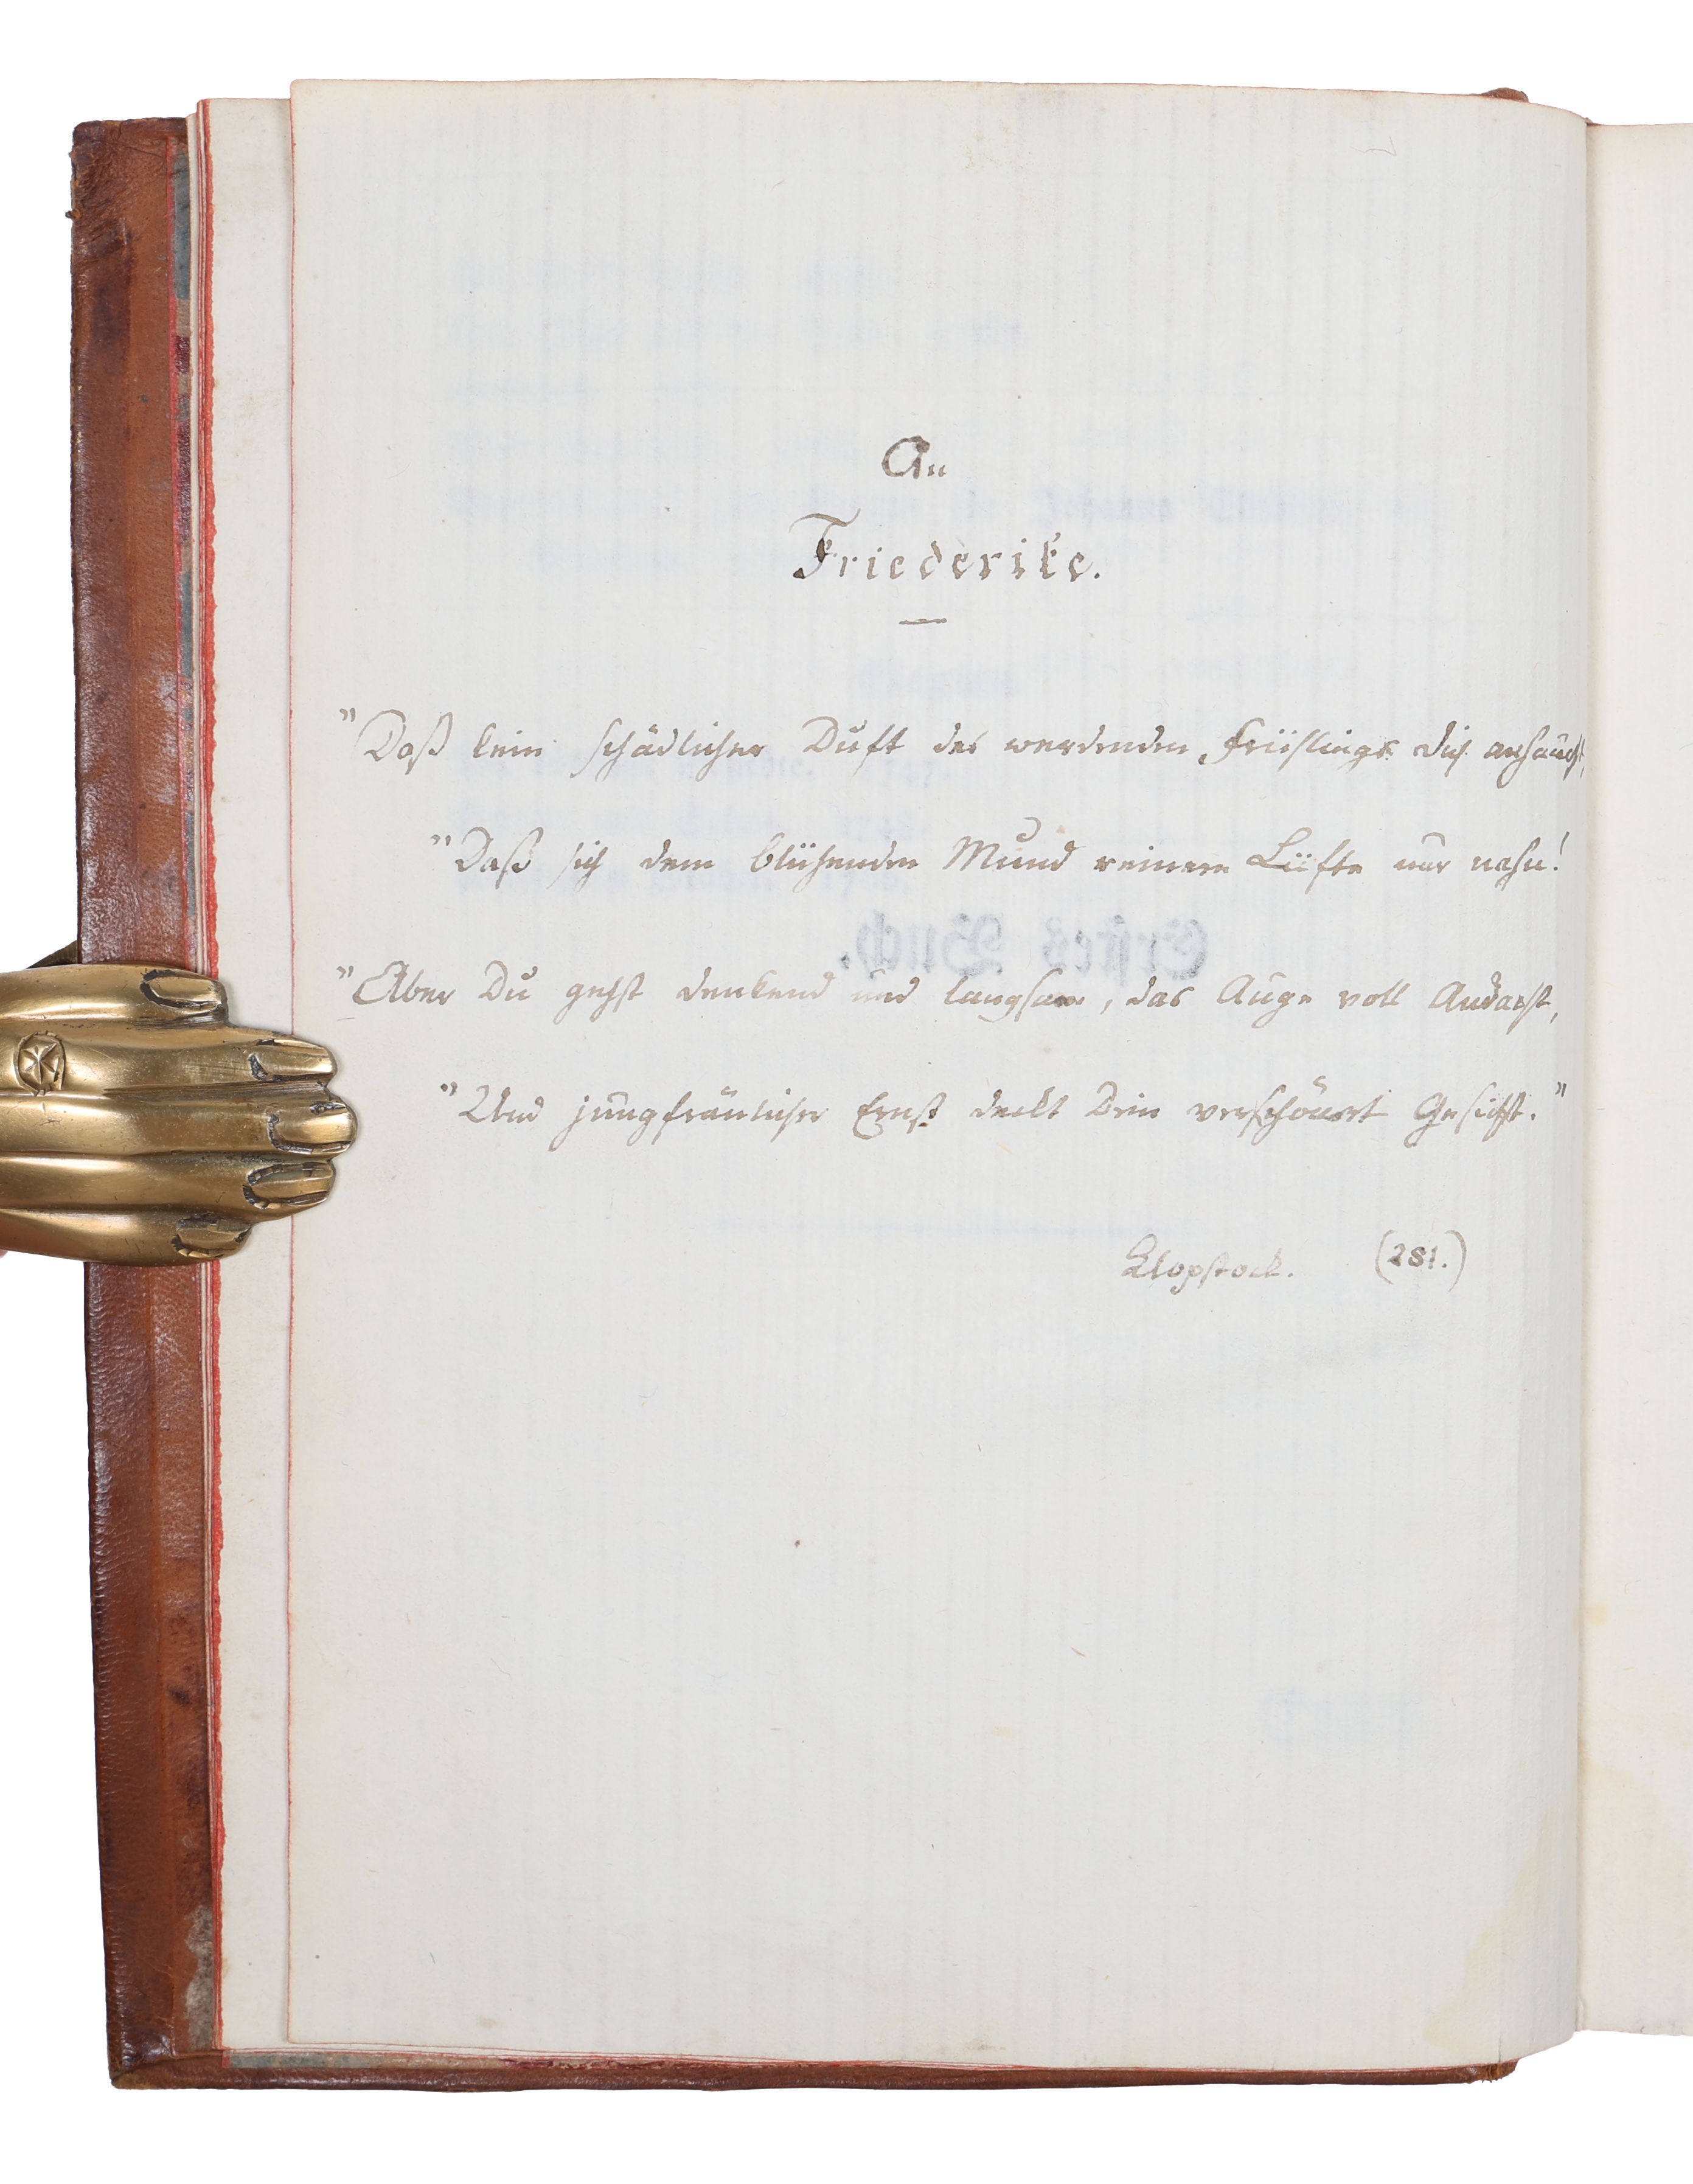 An
Friederike.
"Daß kein schädlicher Duft des werdenden Frühlings dich anhaucht,
"Daß sich dem blühenden Mund reinere Lüfte nur nahn!
"Aber Du gehst denkend und langsam, das Auge voll Andacht,
"Und jungfräulicher Ernst deckt Dein verschönert Gesicht."
Klopstock. (281.)
Erstes Buch.